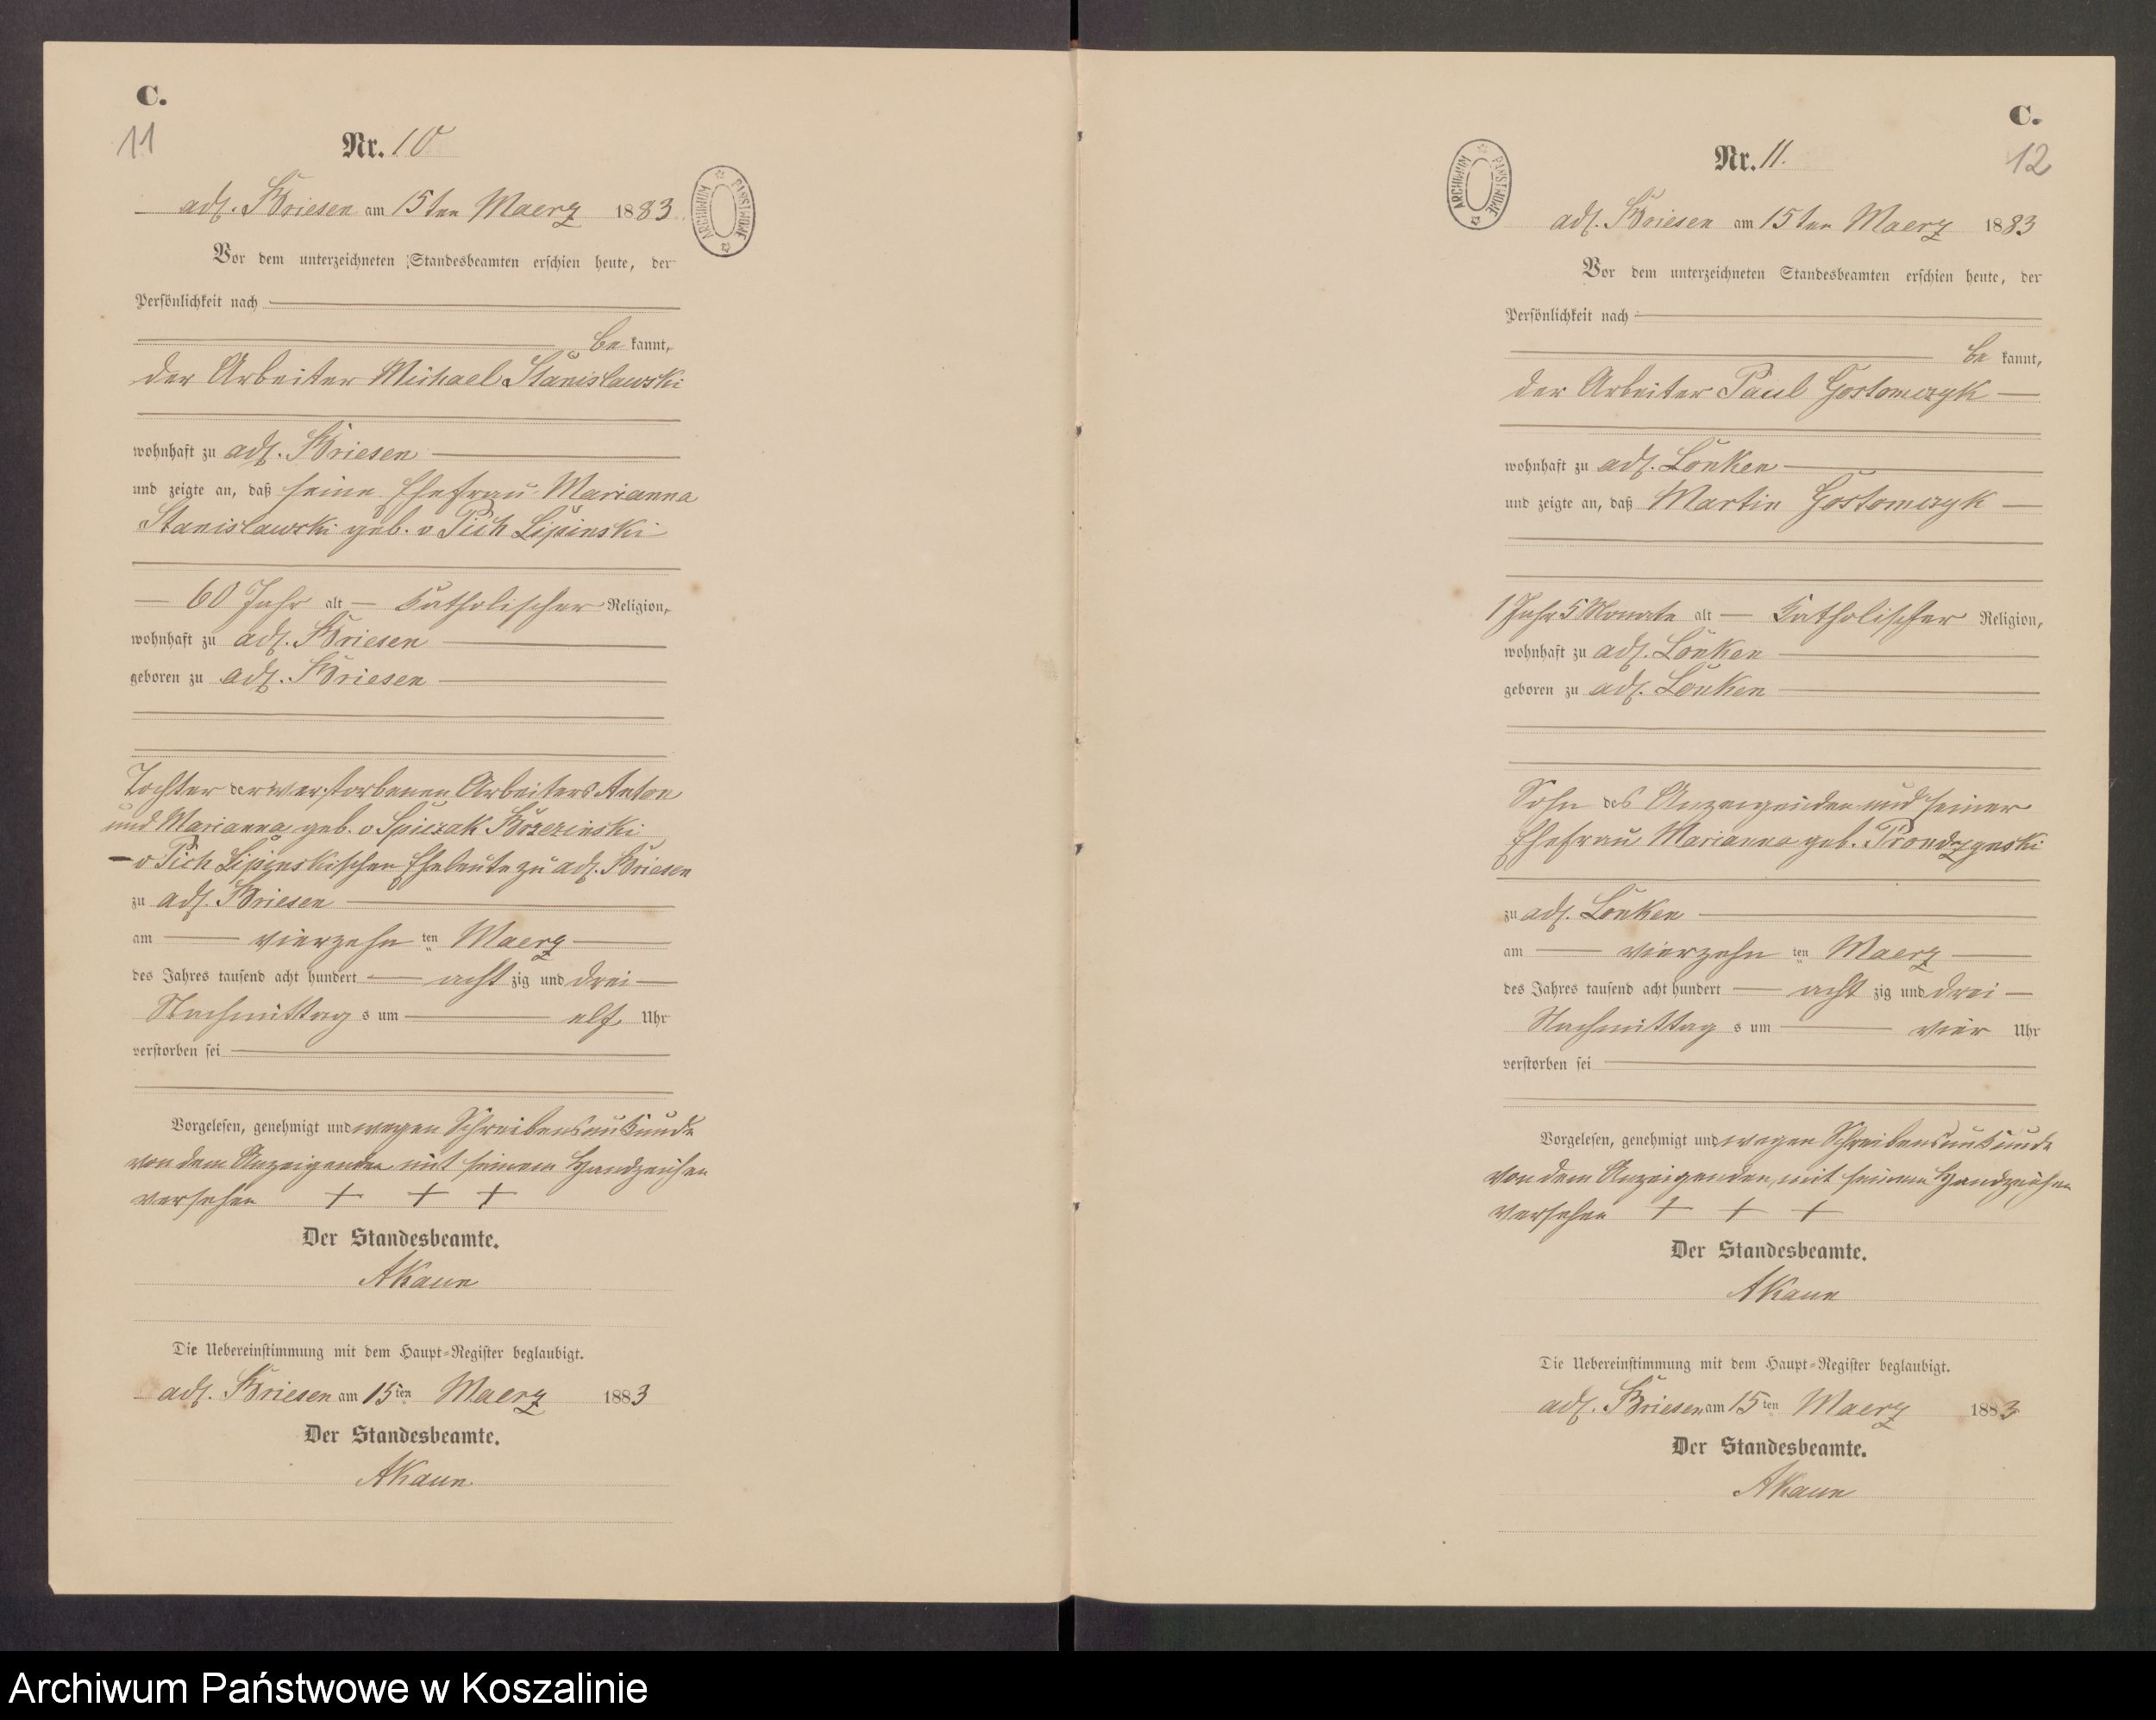 C.
11
Nr. 10
adl. Briesen am 15ten Maerz 1883
ARCHIWUM PAŃSTWOWE
Vor dem unterzeichneten Standesbeamten erschien heute, der
Persönlichkeit nach
be kannt,
der Arbeiter Michael Stanislawski
wohnhaft zu adl. Briesen
und zeigte an, daß seine Ehefrau Marianna
Stanislawski geb. v Pich Lipinski
60 Jahr alt katholischer Religion,
wohnhaft zu adl. Briesen
geboren zu adl. Briesen
Tochter der verstorbenen Arbeiters Anton
und Marianna geb. v Spiczak Brzezinski
v Pich Lipinskischen Eheleute zu adl. Briesen
zu adl. Briesen
am vierzehn ten Maerz
des Jahres tausend acht hundert acht zig und drei
Nachmittag s um elf Uhr
verstorben sei
Vorgelesen, genehmigt und wegen Schreibensunkunde
von dem Anzeigenden mit seinem Handzeichen
versehen + + +
Der Standesbeamte.
AKaun
Die Uebereinstimmung mit dem Haupt-Register beglaubigt.
adl. Briesen am 15ten Maerz 1883
Der Standesbeamte.
AKaun
C.
12
Nr. 11.
ARCHIWUM PAŃSTWOWE
adl. Briesen am 15ten Maerz 1883
Vor dem unterzeichneten Standesbeamten erschien heute, der
Persönlichkeit nach
be kannt,
der Arbeiter Paul Gostomczyk
wohnhaft zu adl. Lonken
und zeigte an, daß Martin Gostomczyk
1 Jahr 5 Monate alt katholischer Religion,
wohnhaft zu adl. Lonken
geboren zu adl. Lonken
Sohn des Anzeigenden und seiner
Ehefrau Marianna geb. Prondzynski
zu adl. Lonken
am vierzehn ten Maerz
des Jahres tausend acht hundert acht zig und drei
Nachmittag s um vier Uhr
verstorben sei
Vorgelesen, genehmigt und wegen Schreibensunkunde
von dem Anzeigenden mit seinem Handzeichen
versehen + + +
Der Standesbeamte.
AKaun
Die Uebereinstimmung mit dem Haupt-Register beglaubigt.
adl. Briesen am 15ten Maerz 1883
Der Standesbeamte.
AKaun
Archiwum Państwowe w Koszalinie